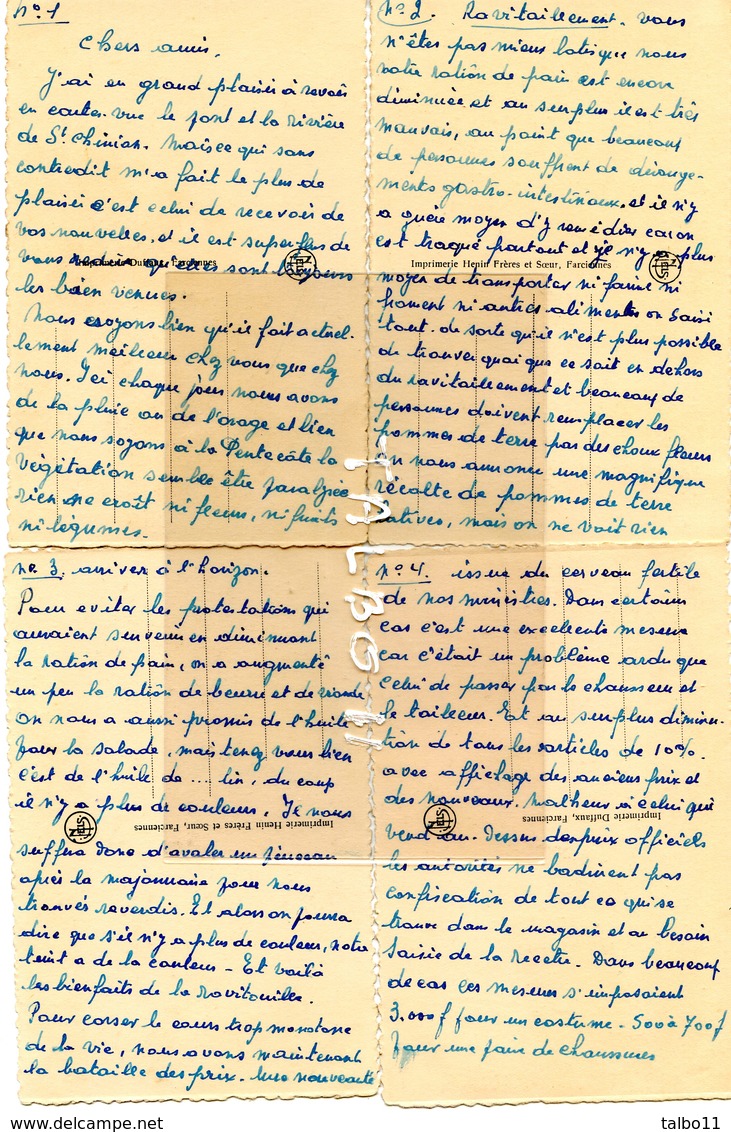 N° 1
Chers amis,
J'ai eu grand plaisir à revoir
en cartes-vue le pont et la rivière
de St Chinian. Mais ce qui sans
contredit m'a fait le plus de
plaisir c'est celui de recevoir de
vos nouvelles, et il est superflus de
vous redire qu'elles sont toujours
les bien venues.
Imprimerie Duffaux, Farciennes
Nous croyons bien qu'il fait actuel-
lement meilleur chez vous que chez
nous. Ici chaque jour nous avons
de la pluie ou de l'orage et bien
que nous soyons à la Pentecôte la
végétation semble être paralysée
rien ne croît ni fleurs, ni fruits
ni légumes.
N° 2. Ravitaillement. Vous
n'êtes pas mieux lotis que nous
votre ration de pain est encore
diminuée et au surplus il est très
mauvais, au point que beaucoup
de personnes souffrent de dérange-
ments gastro-intestinaux, et il n'y
a guère moyen d'y remédier car on
est traqué partout et il n'y a plus
Imprimerie Henin Frères et Sœur, Farciennes
moyen de transporter ni farine ni
froment ni autres aliments on saisi
tout. De sorte qu'il n'est plus possible
de trouver quoique ce soit en dehors
du ravitaillement et beaucoup de
personnes doivent remplacer les
pommes de terre par des choux fleurs
On nous annonce une magnifique
récolte de pommes de terre
hatives, mais on ne voit rien
N° 3. arriver à l'horizon.
Pour eviter les protestations qui
auraient survenu en diminuant
la ration de pain, on a augmenté
un peu la ration de beurre et de viande
On nous a aussi promis de l'huile
pour la salade, mais tenez vous bien
c'est de l'huile de .... lin, du coup
il n'y a plus de couleurs. Il nous
Imprimerie Henin Frères et Sœur, Farciennes
suffira donc d'avaler un pinceau
après la mayonnaise pour nous
trouvés reverdis. Et alors on pourra
dire que s'il n'y a plus de couleur, notre
teint a de la couleur - Et voilà
les bienfaits de la
Pour corser le cours trop monotone
de la vie, nous avons maintenant
la bataille des prix. Une nouveauté
N° 4. issue du cerveau fertile
de nos ministres. Dans certains
cas c'est une excellents mesure
car c'était un problème ardu que
celui de passer par le chausseur et
le tailleur. Et au surplus diminu-
tion de tous les articles de 10%
avec affichage des anciens prix et
des nouveaux. Malheur à celui qui
Imprimerie Duffaux, Farciennes
vend au-dessus des prix officiels
les autorités ne badinent pas
confiscation de tout ce qui se
trouve dans le magasin et au besoin
saisie de la recette. Dans beaucoup
de cas ces mesures s'imposaient
3.000f pour un costume - 500 à 700f
pour une paire de chaussures
TALBO 11
talbo11